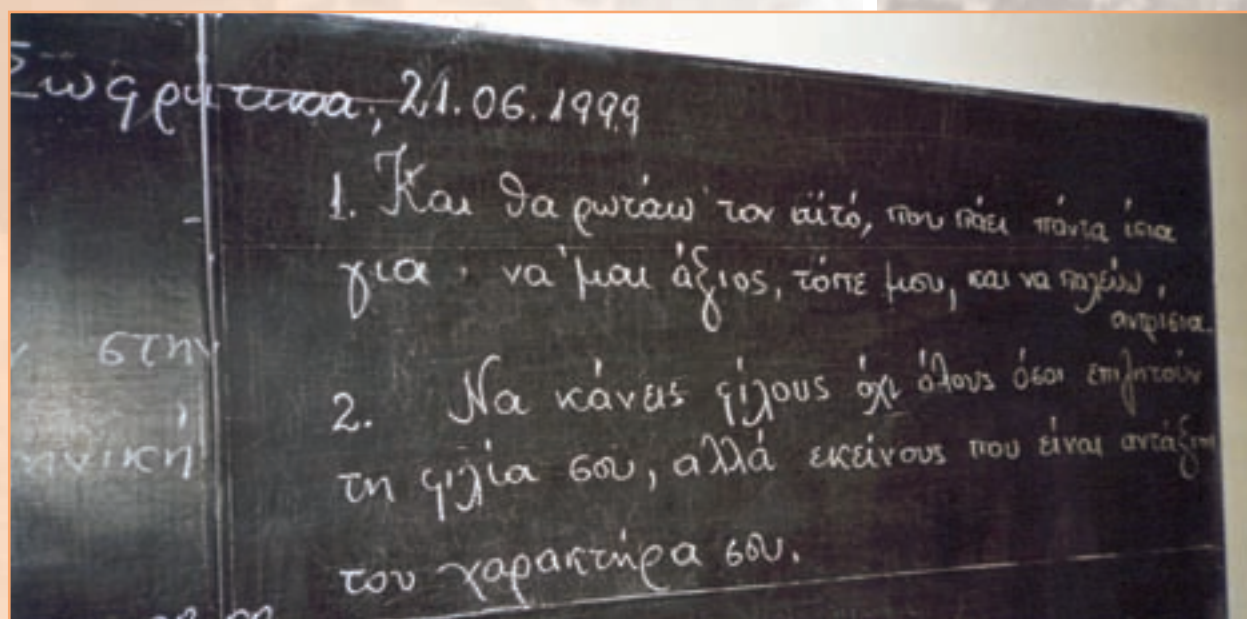 21.06.1999
1. Και θα ρωτάω τον αϊτό, που πάει πάντα ίσια
για να 'μαι άξιος, τόπε μου, και να παλεύω,
αντρίσια.
στην
2. Να κάνεις φίλους όχι όλους όσοι επιζητούν
τη φιλία σου, αλλά εκείνους που είναι αντάξιοι
του χαρακτήρα σου.